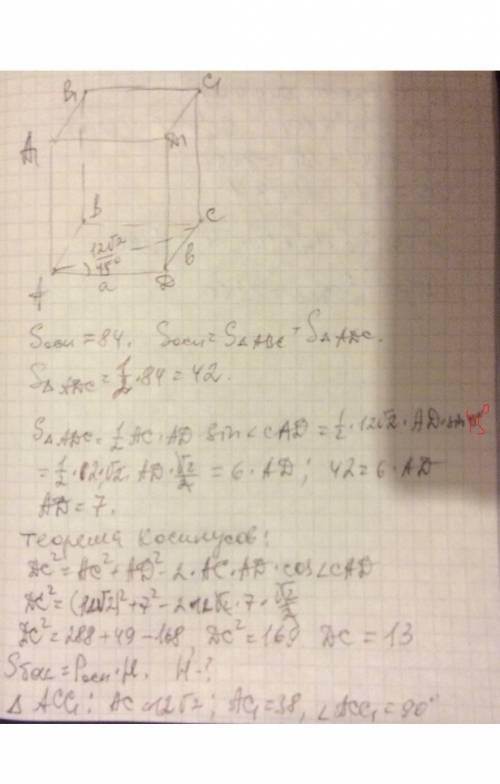 B₁ C₁
A₁ D₁
B C
12√2
45° в
A a D
Sосн = 84. Sосн = S△ABC + S△ADC.
S△ADC = 1/2 · 84 = 42.
S△ADC = 1/2 AC · AD sin∠CAD = 1/2 · 12√2 · AD · sin 45°
= 1/2 · 12√2 · AD · √2/2 = 6 · AD; 42 = 6 · AD
AD = 7.
Теорема косинусов:
DC² = AC² + AD² - 2 · AC · AD · cos∠CAD
DC² = (12√2)² + 7² - 2 · 12√2 · 7 · √2/2
DC² = 288 + 49 - 168, DC² = 169 DC = 13
Sбок = Pосн · H. H - ?
△ACC₁: AC = 12√2; AC₁ = 38, ∠ACC₁ = 90°